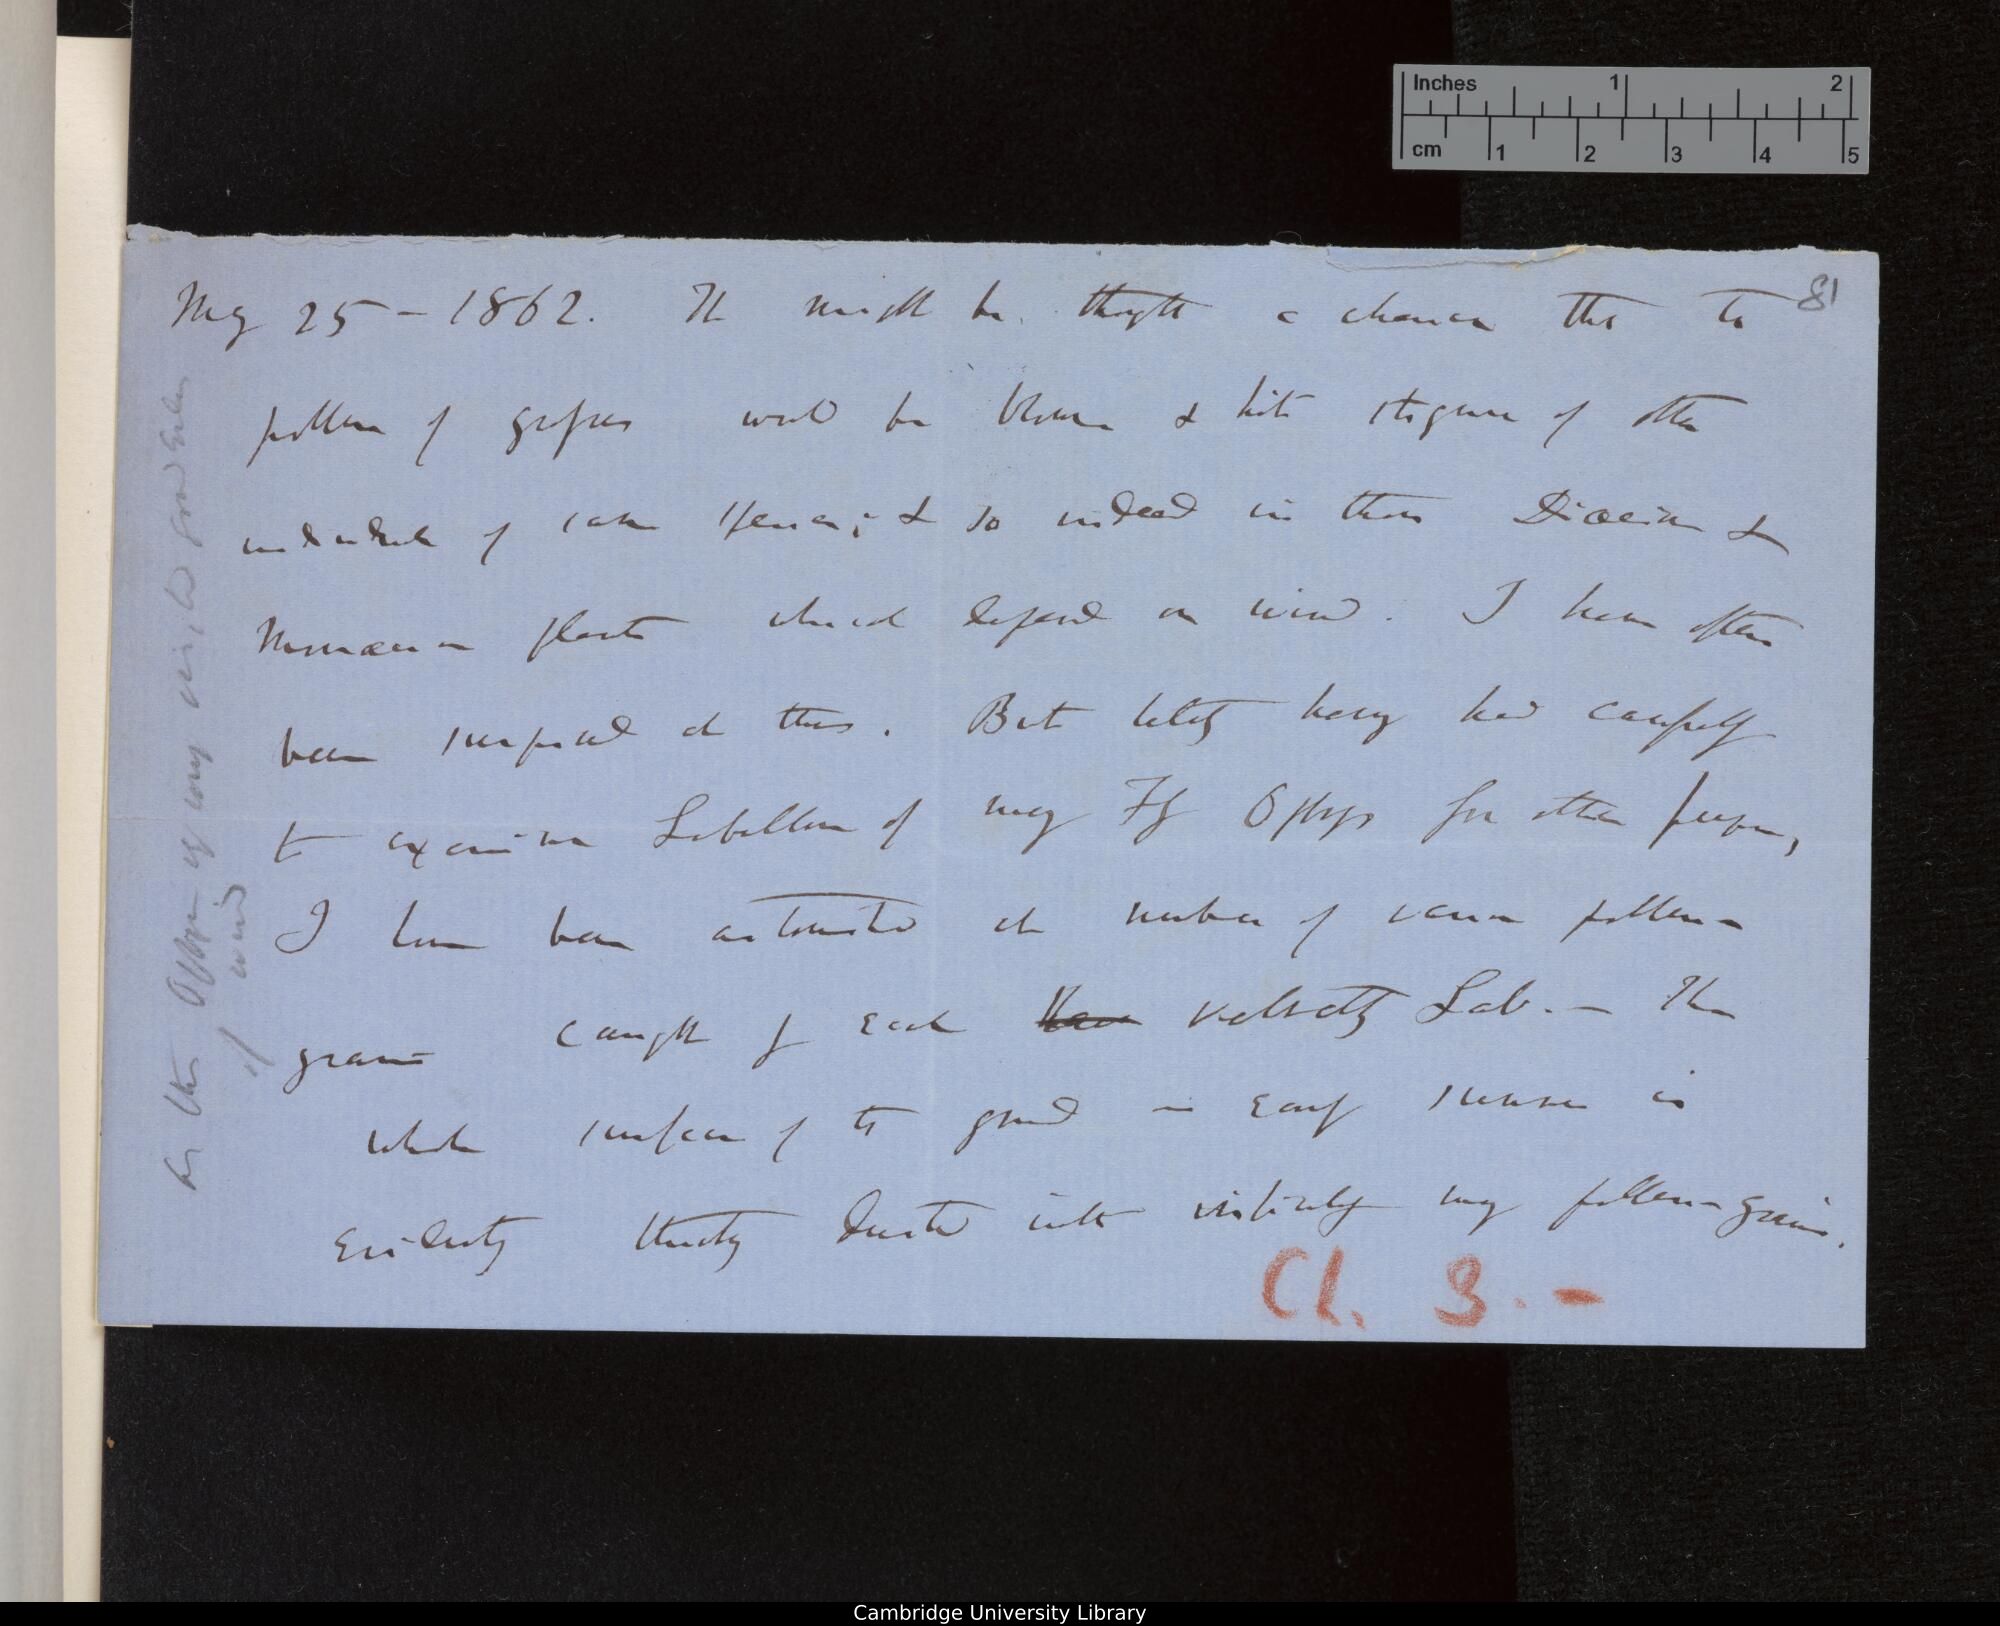 Inches 1 2
cm 1 2 3 4 5
81
May 25 – 1862. It might be thought a chance that the
pollen of grasses would be blown & hit stigma of other
individuals of same species; & so indeed in those Dioecious &
Monoecious plants which depend on wind. I have often
been surprised at this. But lately having had carefully
to examine Labellum of many Fly Ophrys for other purpose,
I have been astonished at number of various pollen-
grains caught by each velvety Lab. – The
whole surface of the ground in early summer is
evidently thickly dusted with infinitely many pollen-grains.
Cl. 3. –
of wind
Cambridge University Library